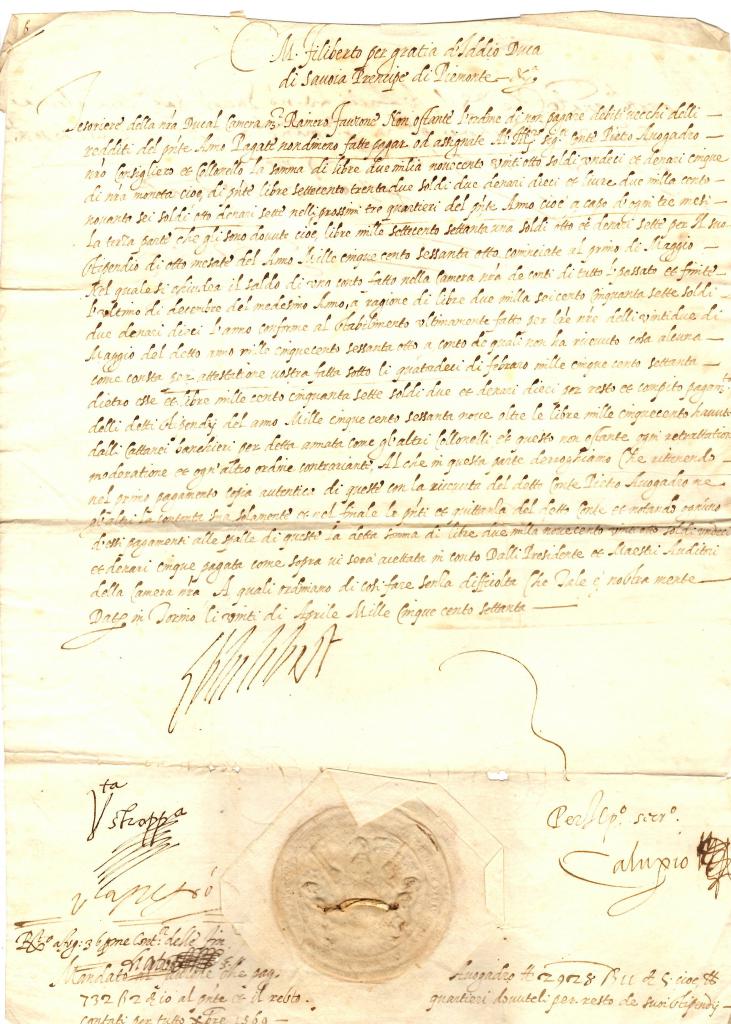 M. Filiberto per gratia d'Iddio Duca
di Savoia Prencipe di Piemonte &c.
Tesoriere della nra Ducal Camera Non ostante l'ordine di non pagare debiti vecchi delli
redditi del pnte Anno Pagate nondimeno fatte pagar od assignate Al Conte Pietro Auogadro
nro Consigliero et Collonello la somma di libre due milia novecento vinti otto soldi undeci et denari cinque
di nra moneta cioe di pnte libre settecento trenta due soldi due denari dieci et livre due milla cento
novanta sei soldi otto denari sette nelli prossimi tre quartieri del pnte Anno cioe a capo d'ogni tre mesi
la terza parte che gli sono dovute cioe libre mille settecento settanta una soldi otto et denari sette per Il suo
stipendio di otto mesate del Anno Mille cinque cento sessanta otto cominciate al primo di Maggio
Nel quale si chiudea il saldo di uno conto fatto nella Camera nra de conti di tutto l'passato et finite
l'ultimo di decembre del medesimo Anno, a ragione di libre due milla seicento cinquanta sette soldi
due denari dieci l'anno conforme al stabilimento ultimamente fatto per lre nre delli vintidue di
Maggio del detto anno mille cinquecento sessanta otto a conto de quali non ha ricevuto cosa alcuna
come consta per attestatione vostra fatta sotto li quatordeci di febraro mille cinque cento settanta
dietro esse et libre mille cento cinquanta sette soldi due et denari dieci per resto et compito pagamto
delli detti stipendy del anno Mille cinque cento sessanta nove oltre le libre mille cinquecento havute
dalli Cattanei banchieri per detta annata come gl'altri Collonelli et questo non ostante ogni retrattation
moderatione et ogn'altro ordine contrariante, Al che in questa parte deroghiamo Che ritenendo
nel primo pagamento copia autentica di queste con la ricevuta del detto Conte Pietro Auogadro ne
gl'altri la contenta sua solamente et nel finale le pnti et quittanza del detto Conte et notando
d'essi pagamenti alle spalle di queste la detta somma di libre due mila novecento vinti otto soldi undeci
et denari cinque pagata come sopra vi sera accettata in conto Dalli Presidente et Maestri Auditori
della Camera nra A quali ordiniamo di cosi fare senza difficolta Che Tale e' nostra mente
Date in Torino li vinti di Aprile Mille Cinque cento settanta
Vta
Stroppa
Per secro.
Caluxio
Mandato che pag.
732 al pnte et il resto
contati per tutto 1569
Auogadro 2928 11 5 cioe
quartieri dovuteli per resto de suoi stipendy